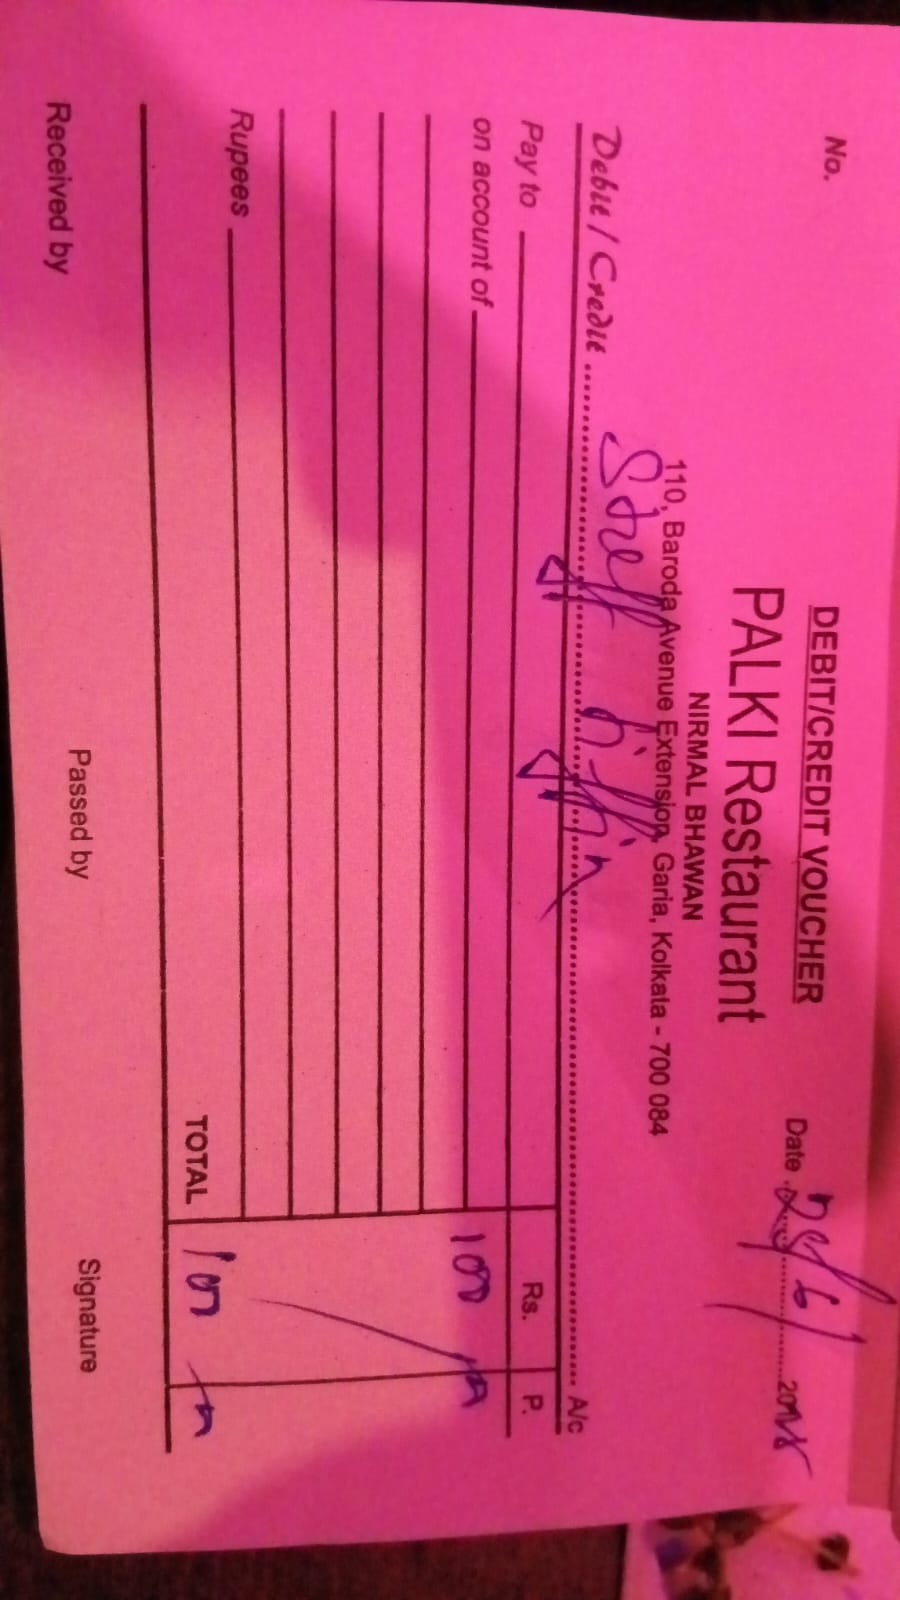 DEBIT/CREDIT VOUCHER
No.
PALKI Restaurant
Date
NIRMAL BHAWAN
110, Baroda Avenue Extension, Garia, Kolkata - 700 084
Debit / Credit Staff tiffin A/c
Pay to Rs. P.
on account of 100
Rupees
TOTAL 100
Received by Passed by Signature